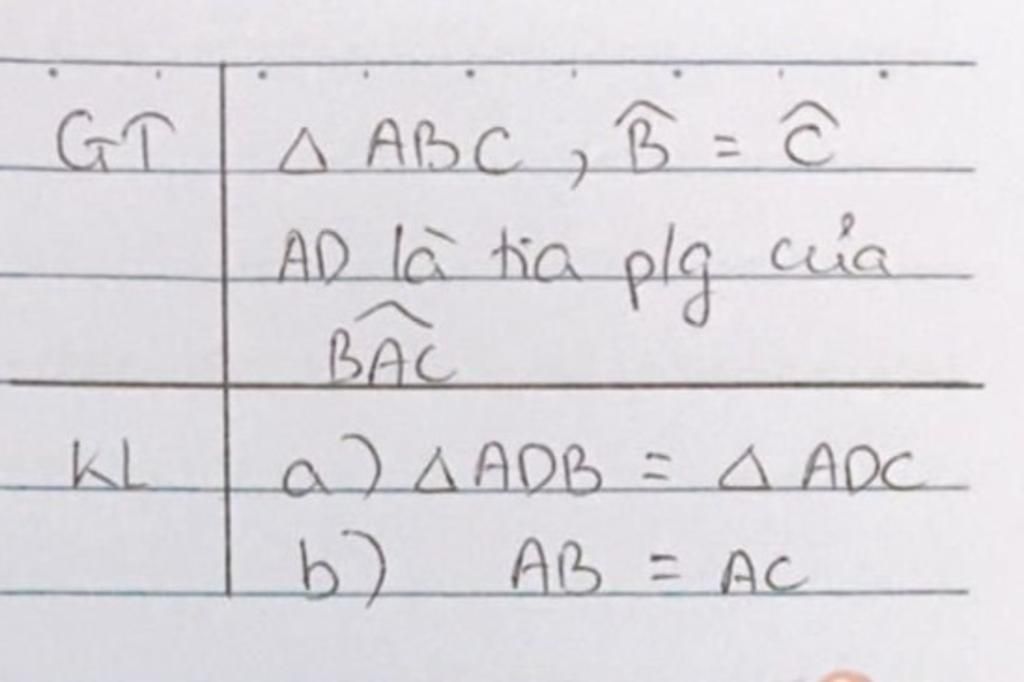 GT △ ABC, B̂ = Ĉ
AD là tia p/g của
B̂AC
KL a) △ADB = △ ADC
b) AB = AC